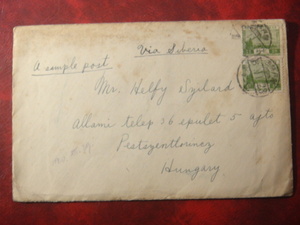 Via Siberia
A sample post
Mr. Helfy Szilard
Allami telep 36 epulet 5 ajto
Pestszentlorincz
Hungary